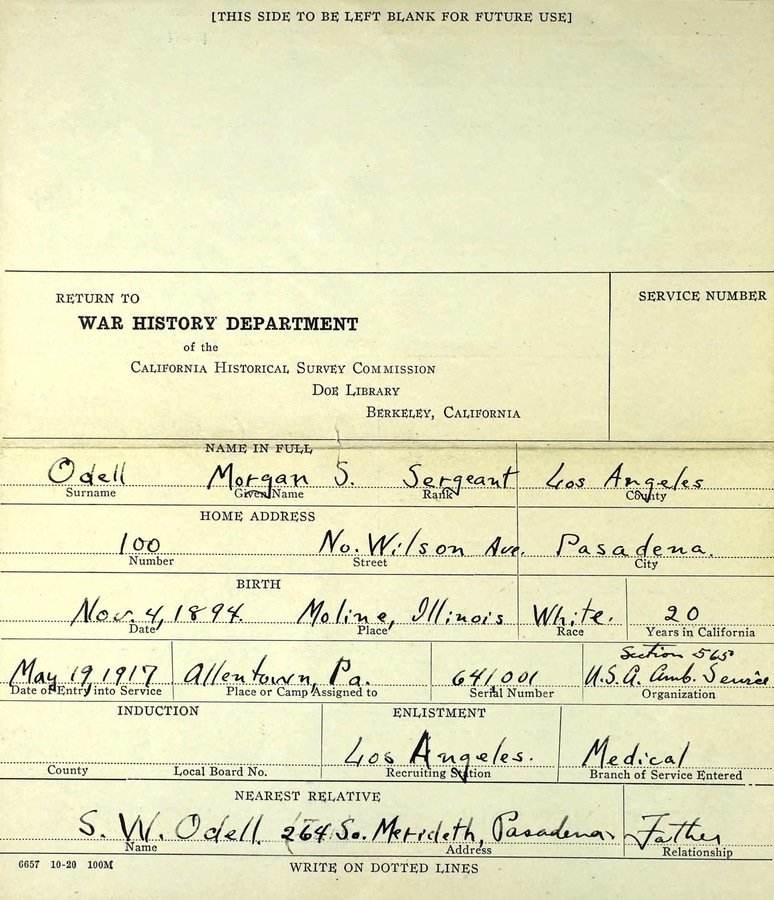 [THIS SIDE TO BE LEFT BLANK FOR FUTURE USE]
RETURN TO
WAR HISTORY DEPARTMENT
of the
CALIFORNIA HISTORICAL SURVEY COMMISSION
DOE LIBRARY
BERKELEY, CALIFORNIA
SERVICE NUMBER
NAME IN FULL
Odell Morgan S. Sergeant Los Angeles
Surname Given Name Rank County
HOME ADDRESS
100 No. Wilson Ave. Pasadena.
Number Street City
BIRTH
Nov. 4, 1894. Moline, Illinois White. 20
Date Place Race Years in California
Section 565
May 19, 1917 Allentown, Pa. 641,001 U.S.A. Amb. Service
Date of Entry into Service Place or Camp Assigned to Serial Number Organization
INDUCTION ENLISTMENT
Los Angeles. Medical
County Local Board No. Recruiting Station Branch of Service Entered
NEAREST RELATIVE
S. W. Odell. 264 So. Merideth, Pasadena. Father
Name Address Relationship
6657 10-20 100M WRITE ON DOTTED LINES